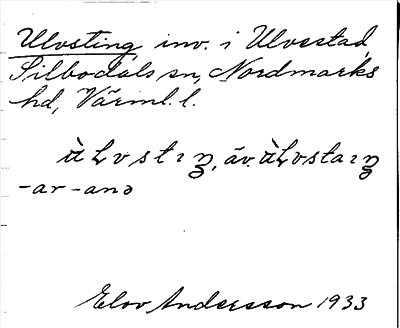 Ulvsting inv. i Ulvestad,
Silbodals sn, Nordmarks
hd, Värml. l.
ùLvstıŋ, äv. ùLvstaıŋ
-ar -anə
Elov Andersson 1933